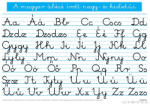 A magyar ábécé írott nagy- és kisbetűi
Aa Áá Bb Cc Cscs Dd
Dzdz Dzsdzs Ee Éé Ff Gg
Gygy Hh Ii Íí Jj Kk Ll
Lyly Mm Nn Nyny Oo
Óó Öö Őő Pp Qq Rr Ss
Szsz Tt Tyty Uu Úú Üü
Űű Vv Ww Xx Yy Zz Zszs